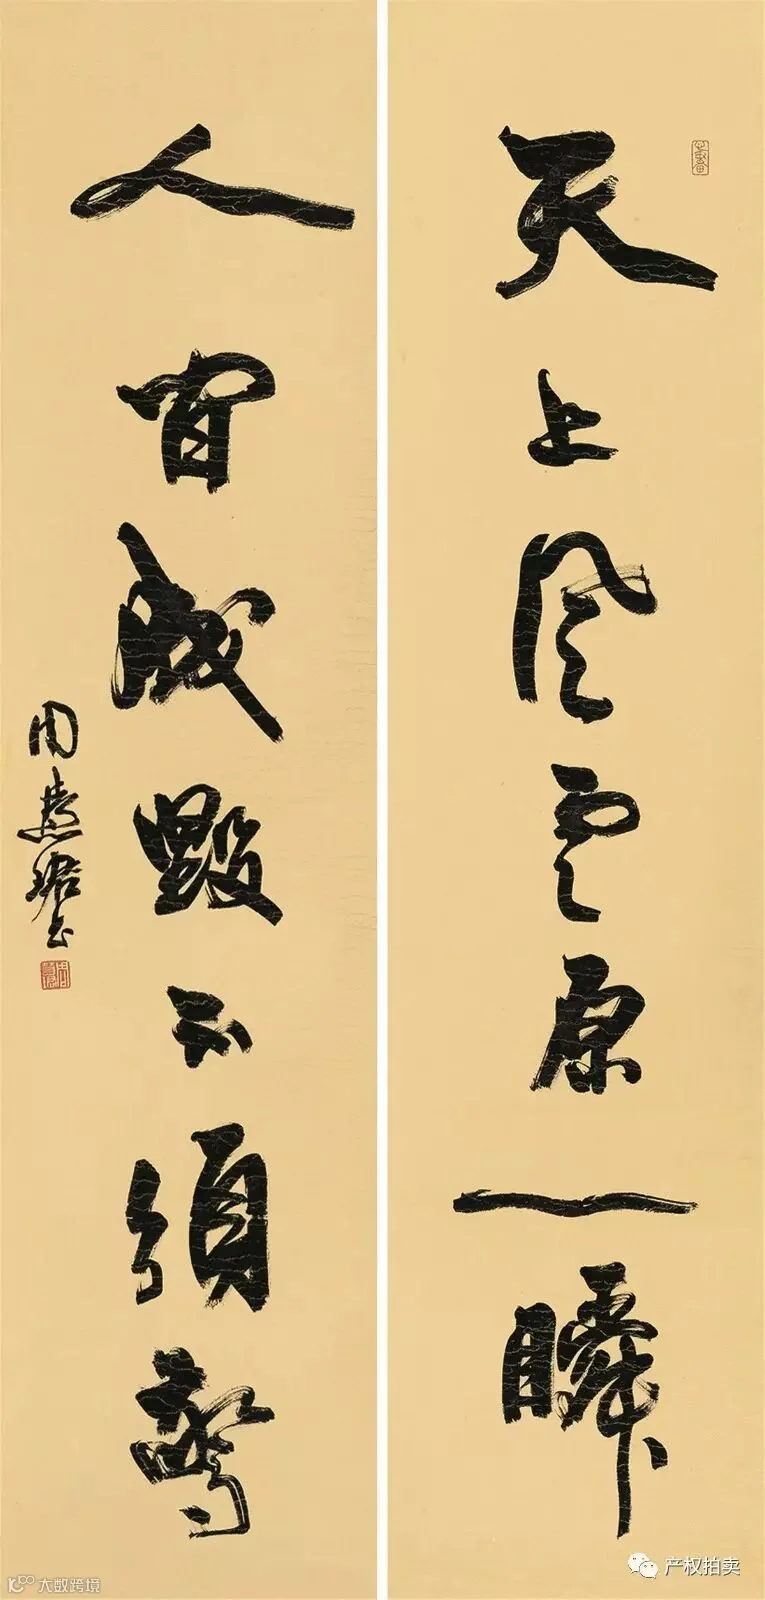 天上风云原一瞬
人間成毁不須驚
周慧珺书
产权拍卖
大数跨境